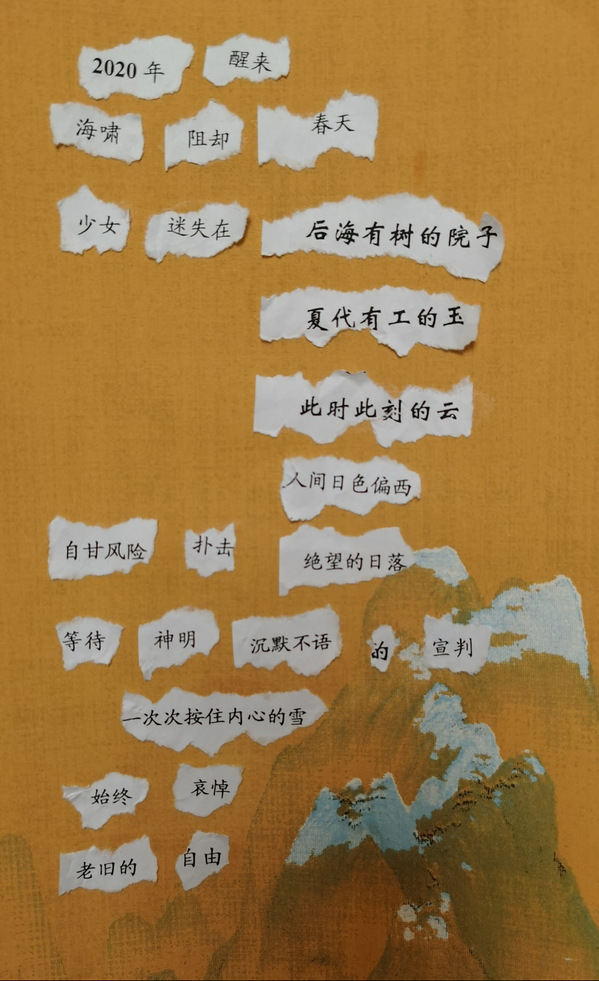 2020 年 醒来
海啸 阻却 春天
少女 迷失在 后海有树的院子
夏代有工的玉
此时此刻的云
人间日色偏西
自甘风险 扑击 绝望的日落
等待 神明 沉默不语 的 宣判
一次次按住内心的雪
始终 哀悼
老旧的 自由